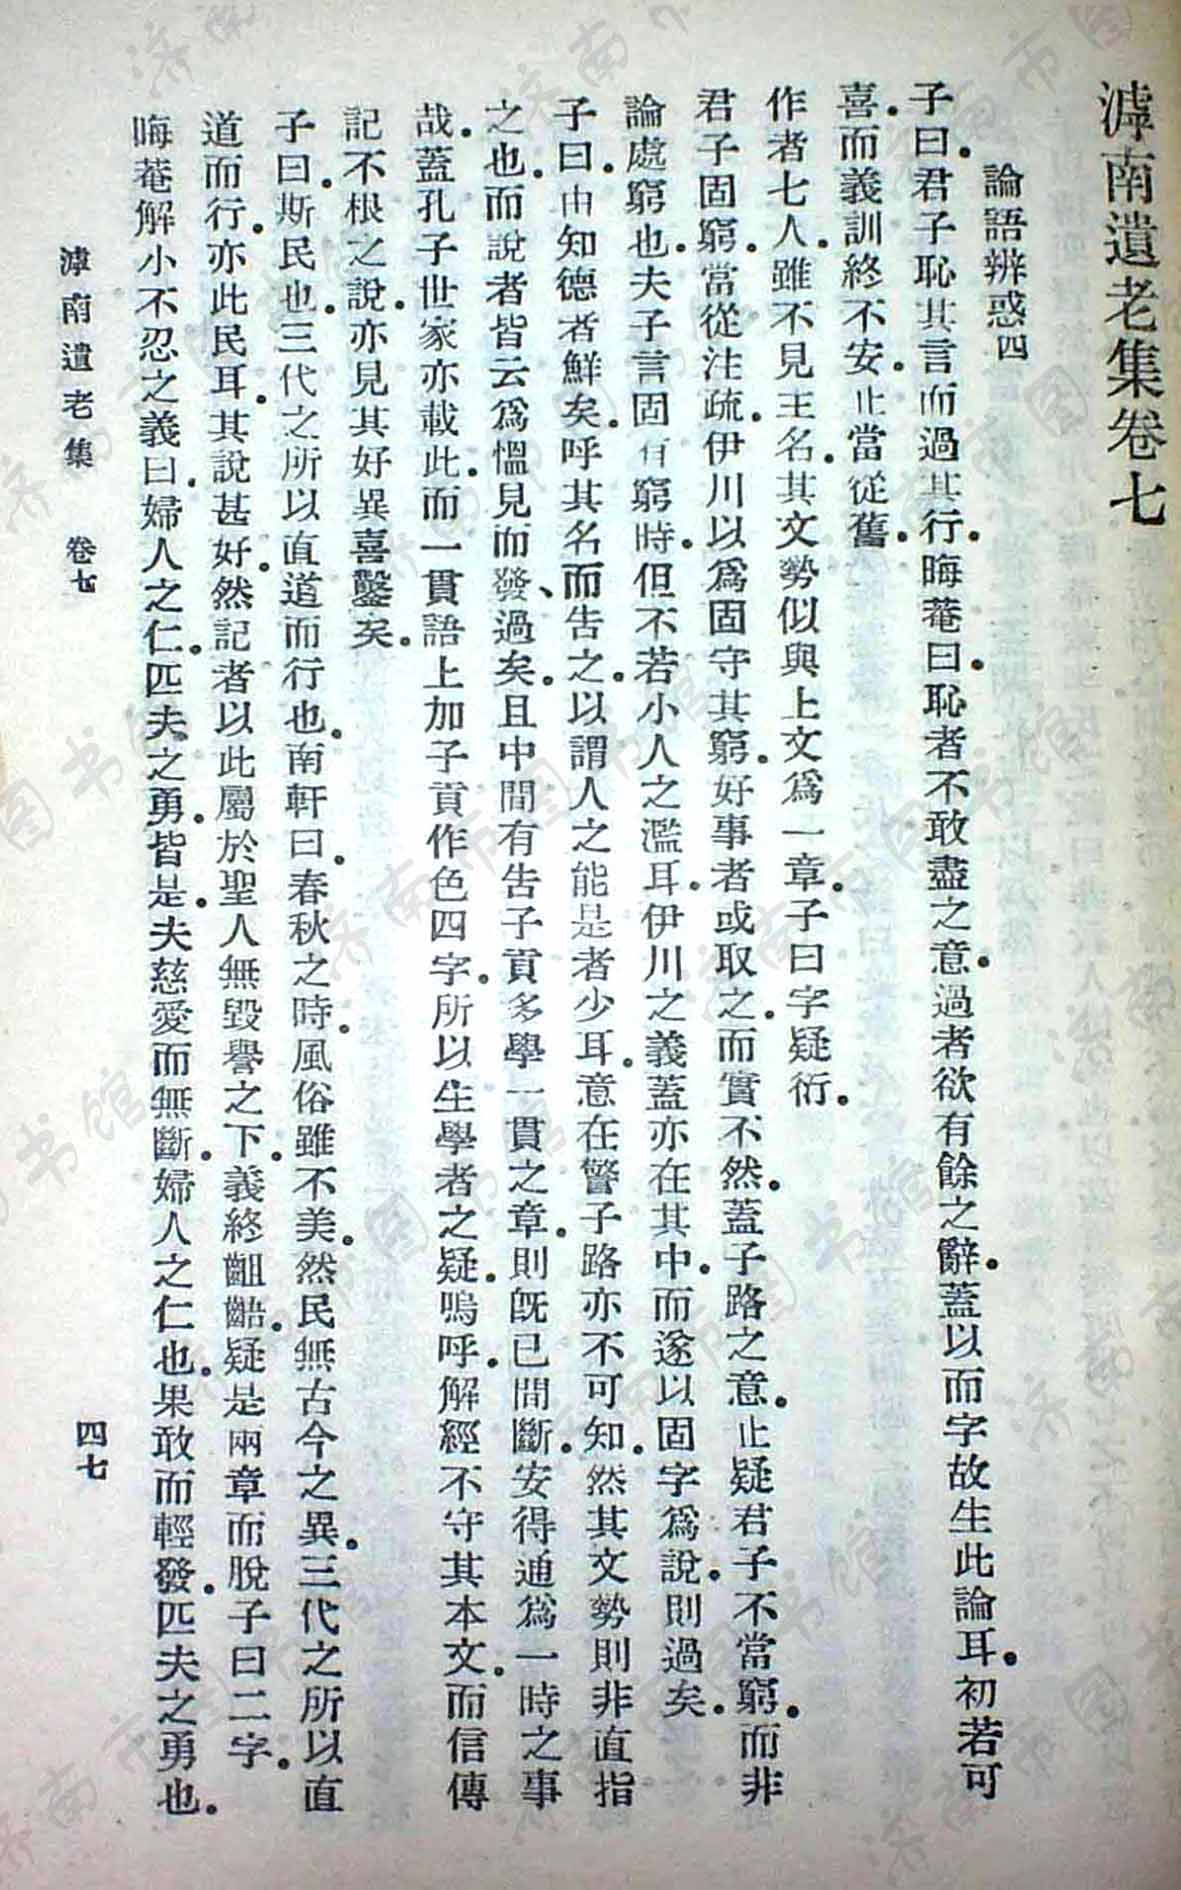 滹南遺老集卷七
論語辨惑四
子曰。君子恥其言而過其行。晦菴曰。恥者不敢盡之意。過者欲有餘之辭。蓋以而字故生此論耳。初若可
喜。而義訓終不安。止當從舊。
作者七人。雖不見主名。其文勢似與上文爲一章。子曰字疑衍。
君子固窮。當從注疏。伊川以爲固守其窮。好事者或取之。而實不然。蓋子路之意。止疑君子不當窮。而非
論處窮也。夫子言固有窮時。但不若小人之濫耳。伊川之義蓋亦在其中。而遂以固字爲說。則過矣。
子曰。由知德者鮮矣。呼其名而告之。以謂人之能是者少耳。意在警子路亦不可知。然其文勢則非直指
之也。而說者皆云爲慍見而發、過矣。且中間有告子貢多學一貫之章。則既已間斷。安得通爲一時之事
哉。蓋孔子世家亦載此。而一貫語上加子貢作色四字。所以生學者之疑。嗚呼。解經不守其本文。而信傳
記不根之說。亦見其好異喜鑿矣。
子曰。斯民也。三代之所以直道而行也。南軒曰。春秋之時。風俗雖不美。然民無古今之異。三代之所以直
道而行。亦此民耳。其說甚好。然記者以此屬於聖人無毀譽之下。義終齟齬。疑是兩章而脫子曰二字。
晦菴解小不忍之義曰。婦人之仁。匹夫之勇。皆是。夫慈愛而無斷。婦人之仁也。果敢而輕發。匹夫之勇也。
滹南遺老集 卷七
四七
濟南市图书馆